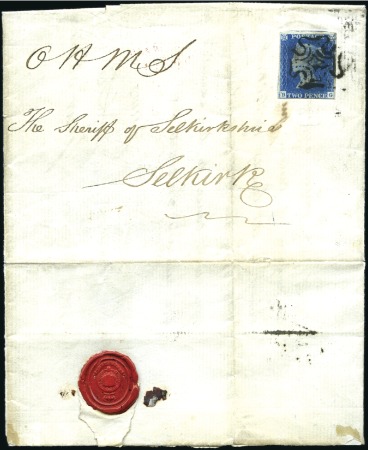 O H M S
POSTAGE
TWO PENCE
The Sheriff of Selkirkshire
Selkirk